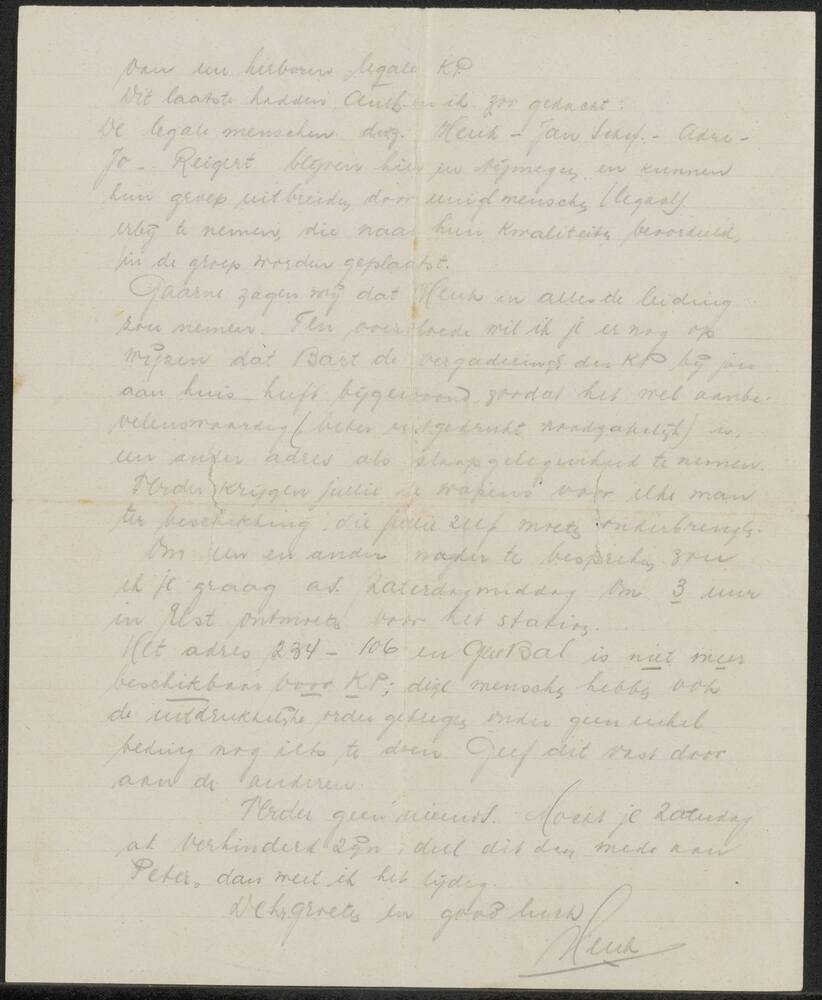 van een herboren legale KP.
Dit laatste hadden en ik zoo gedacht:
De legale menschen d.w.z. Henk - Jan - Adri -
Jo - Reigert blijven hier in Nijmegen en kunnen
hun groep uitbreiden door eenige menschen (legaal)
erbij te nemen, die naar hun kwaliteiten beoordeeld,
in de groep worden geplaatst.
Gaarne zagen wij dat Henk in alles de leiding
zou nemen. Ten overvloede wil ik je er nog op
wijzen dat Bart de vergaderingen der KP bij jou
aan huis heeft bijgewoond zoodat het wel aanbe-
velenswaardig (beter uitgedrukt noodzakelijk) is,
een ander adres als slaapgelegenheid te nemen.
Verder krijgen jullie de wapens voor elke man
ter beschikking, die jullie zelf moeten onderbrengen.
Om een en ander nader te bespreken zou
ik je graag a.s. Zaterdagmiddag om 3 uur
in Elst ontmoeten voor het station.
Het adres 234 - 106 en is niet meer
beschikbaar voor KP; deze menschen hebben ook
de uitdrukkelijke order gekregen onder geen enkel
beding nog iets te doen. Geef dit vast door
aan de anderen.
Verder geen nieuws. Mocht je Zaterdag
a.s. verhinderd zijn, deel dit dan mede aan
Peter, dan weet ik het tijdig.
groeten en good luck
Henk